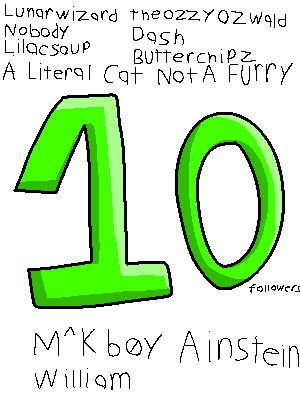 Lunarwizard theozzyozwald
Nobody Dash
Lilacsoup Butterchipz
A Literal Cat Not A Furry
10
followers
M^Kboy Ainstein
William